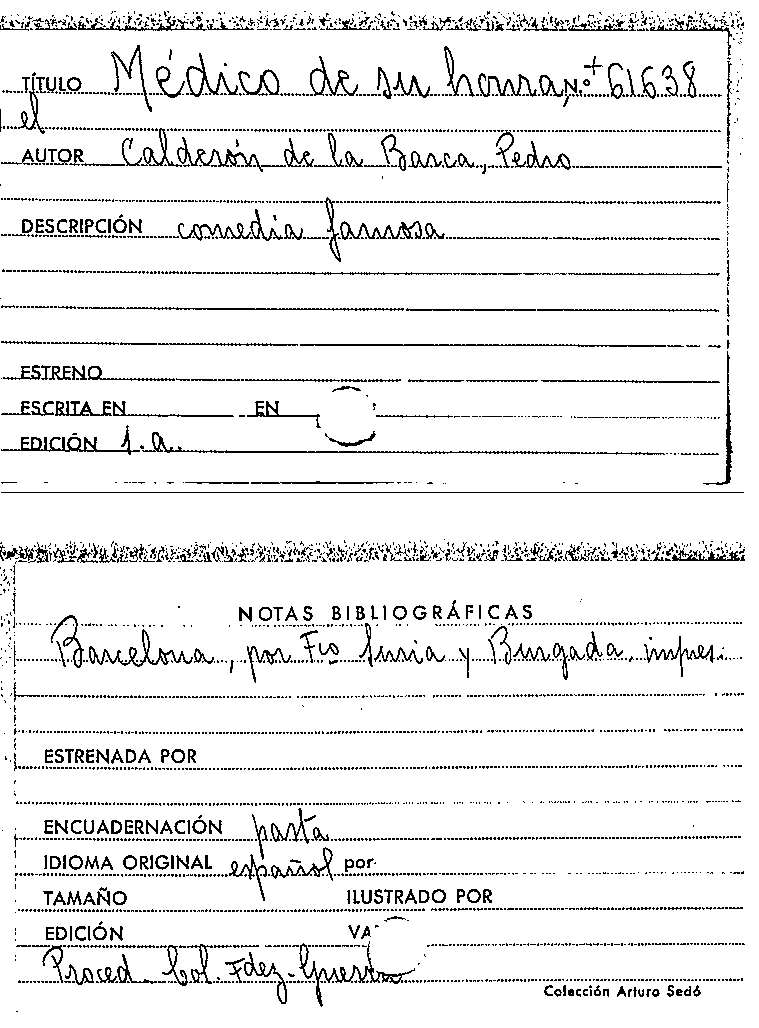 TÍTULO Médico de su honra, N.º + 61638
el
AUTOR Calderón de la Barca, Pedro
DESCRIPCIÓN comedia famosa
ESTRENO
ESCRITA EN EN
EDICIÓN s.a.
NOTAS BIBLIOGRÁFICAS
Barcelona, por Fco Suria y Burgada, impres.
ESTRENADA POR
ENCUADERNACIÓN pasta
IDIOMA ORIGINAL español por
TAMAÑO ILUSTRADO POR
EDICIÓN
Proced. Col. Fdez-Guerra
Colección Arturo Sedó